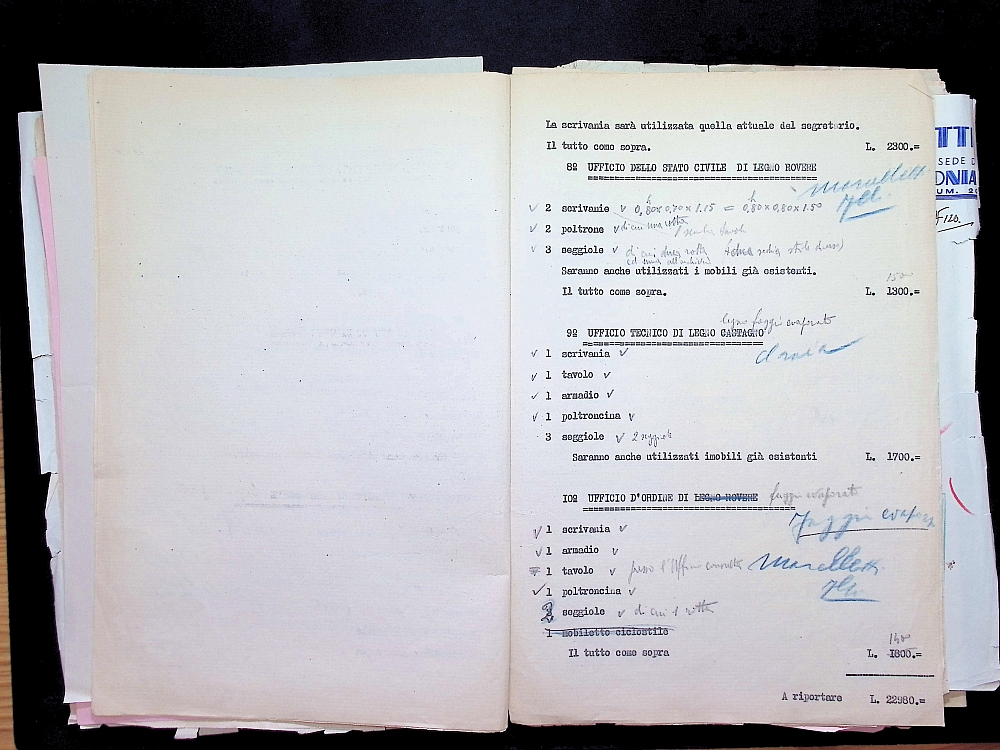 La scrivania sarà utilizzata quella attuale del segretario.
Il tutto come sopra. L. 2300.=
8º UFFICIO DELLO STATO CIVILE DI LEGNO ROVERE
✓ 2 scrivanie ✓ 0,80x0.70x1.15 = 0,80x0.80x1.50
✓ 2 poltrone ✓ di cui una rotta
✓ 3 seggiole ✓ di cui rotta
Saranno anche utilizzati i mobili già esistenti.
150
Il tutto come sopra. L. 1300.=
legno faggio evaporato
9º UFFICIO TECNICO DI LEGNO CASTAGNO
✓ 1 scrivania ✓
✓ 1 tavolo ✓
✓ 1 armadio ✓
✓ 1 poltroncina ✓
3 seggiole ✓ 2 seggiole
Saranno anche utilizzati imobili già esistenti L. 1700.=
10º UFFICIO D'ORDINE DI LEGNO ROVERE faggio evaporato
Faggio
✓ 1 scrivania ✓
✓ 1 armadio ✓
1 tavolo ✓ presso l'Ufficio
✓ 1 poltroncina ✓
2 seggiole ✓ di cui 1 rotta
1 mobiletto ciclostile
Il tutto come sopra L. 1800.=
A riportare L. 22980.=
TTI
SEDE D
ONIA
UM. 20